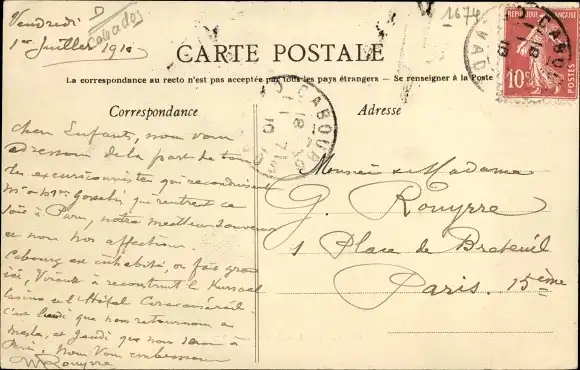 Vendredi
1er Juillet 1910
D
Calvados
1674
CARTE POSTALE
La correspondance au recto n'est pas acceptée par tous les pays étrangers — Se renseigner à la Poste
RÉPUBLIQUE FRANÇAISE
10c
CABOURG
Correspondance
Adresse
Chers Enfants, nous vous
adressons de la part de tous
les excursionnistes qui reconduisent
Mr & Mme Gosselin qui rentrent ce
soir à Paris, notre meilleur souvenir
et nos affections.
Cabourg est inhabité, on fait grand
ici, reconstruit le Kursaal
Casino et l'Hôtel
c'est lundi que nous retournons à
et jeudi que nous serons à
Paris. Nous vous embrassons
Rouyrre
Monsieur & Madame
G. Rouyrre
1 Place de Breteuil
Paris. 15ème